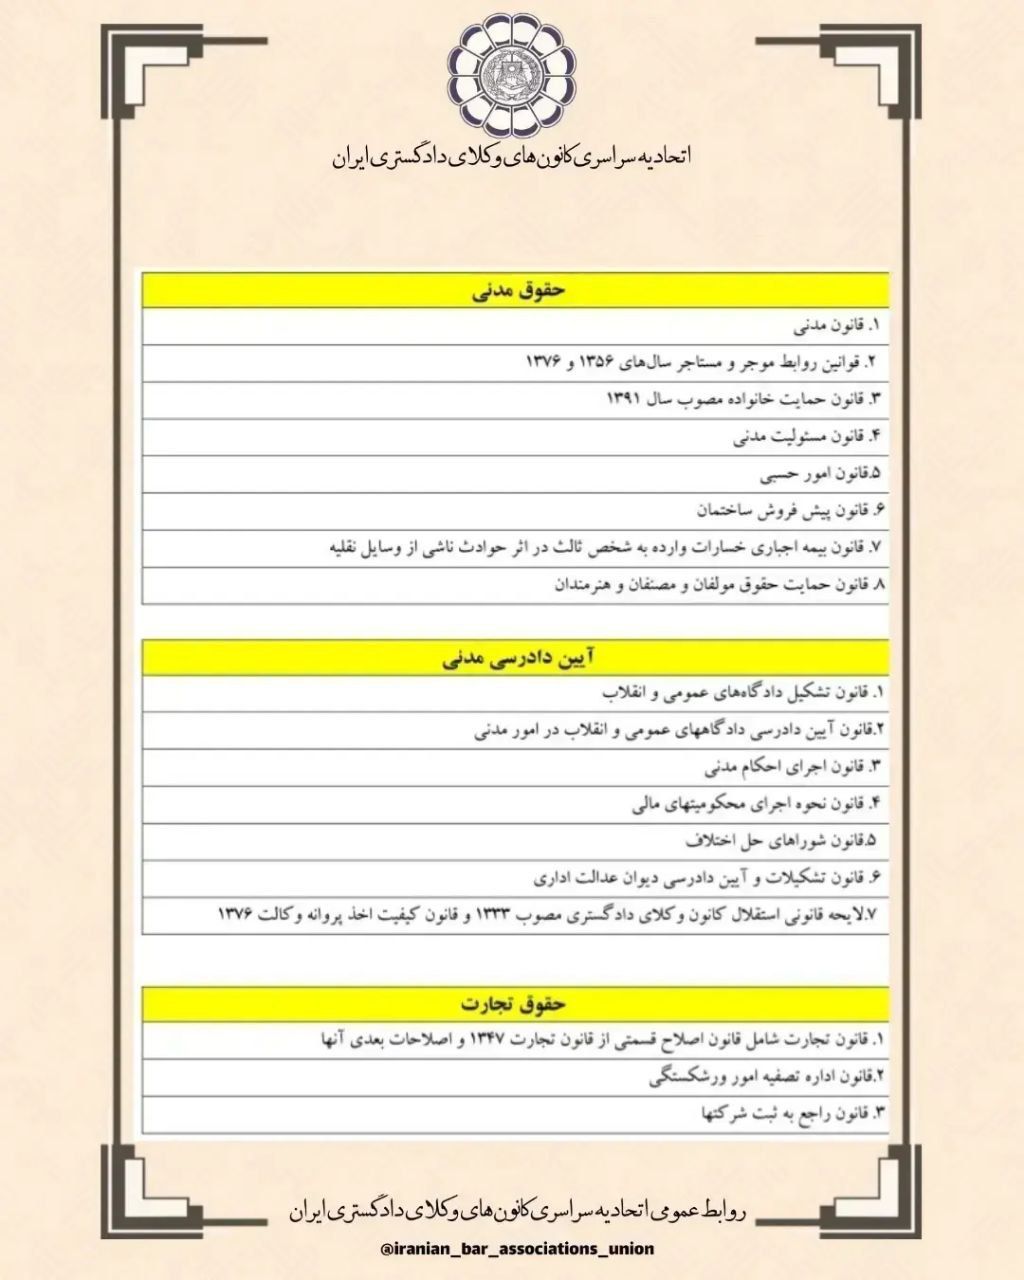 اتحادیه سراسری کانون‌های وکلای دادگستری ایران
حقوق مدنی
۱. قانون مدنی
۲. قوانین روابط موجر و مستاجر سال‌های ۱۳۵۶ و ۱۳۷۶
۳. قانون حمایت خانواده مصوب سال ۱۳۹۱
۴. قانون مسئولیت مدنی
۵.قانون امور حسبی
۶. قانون پیش فروش ساختمان
۷. قانون بیمه اجباری خسارات وارده به شخص ثالث در اثر حوادث ناشی از وسایل نقلیه
۸. قانون حمایت حقوق مولفان و مصنفان و هنرمندان
آیین دادرسی مدنی
۱. قانون تشکیل دادگاه‌های عمومی و انقلاب
۲.قانون آیین دادرسی دادگاههای عمومی و انقلاب در امور مدنی
۳. قانون اجرای احکام مدنی
۴. قانون نحوه اجرای محکومیتهای مالی
۵.قانون شوراهای حل اختلاف
۶. قانون تشکیلات و آیین دادرسی دیوان عدالت اداری
۷.لایحه قانونی استقلال کانون وکلای دادگستری مصوب ۱۳۳۳ و قانون کیفیت اخذ پروانه وکالت ۱۳۷۶
حقوق تجارت
۱. قانون تجارت شامل قانون اصلاح قسمتی از قانون تجارت ۱۳۴۷ و اصلاحات بعدی آنها
۲.قانون اداره تصفیه امور ورشکستگی
۳. قانون راجع به ثبت شرکتها
روابط عمومی اتحادیه سراسری کانون‌های وکلای دادگستری ایران
@iranian_bar_associations_union